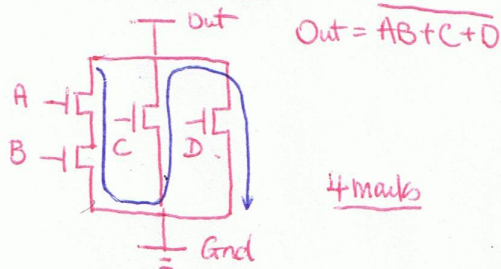 Out
Out = \overline{AB+C+D}
A
B
C
D
4 marks
Gnd